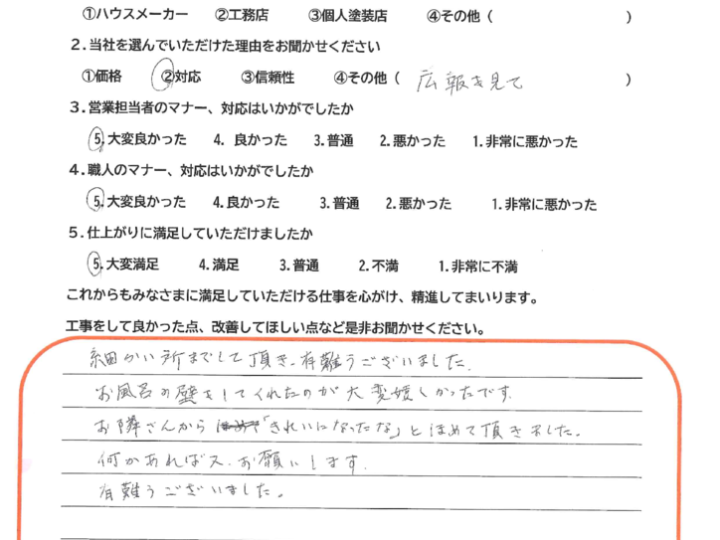 ①ハウスメーカー ②工務店 ③個人塗装店 ④その他（ ）
２．当社を選んでいただけた理由をお聞かせください
①価格 ②対応 ③信頼性 ④その他（ 広報を見て ）
３．営業担当者のマナー、対応はいかがでしたか
５．大変良かった ４．良かった ３．普通 ２．悪かった １．非常に悪かった
４．職人のマナー、対応はいかがでしたか
５．大変良かった ４．良かった ３．普通 ２．悪かった １．非常に悪かった
５．仕上がりに満足していただけましたか
５．大変満足 ４．満足 ３．普通 ２．不満 １．非常に不満
これからもみなさまに満足していただける仕事を心がけ、精進してまいります。
工事をして良かった点、改善してほしい点など是非お聞かせください。
細かい所までして頂き、有難うございました。
お風呂の壁をしてくれたのが大変嬉しかったです。
お隣さんから「きれいになったな」とほめて頂きました。
何かあれば又、お願いします。
有難うございました。